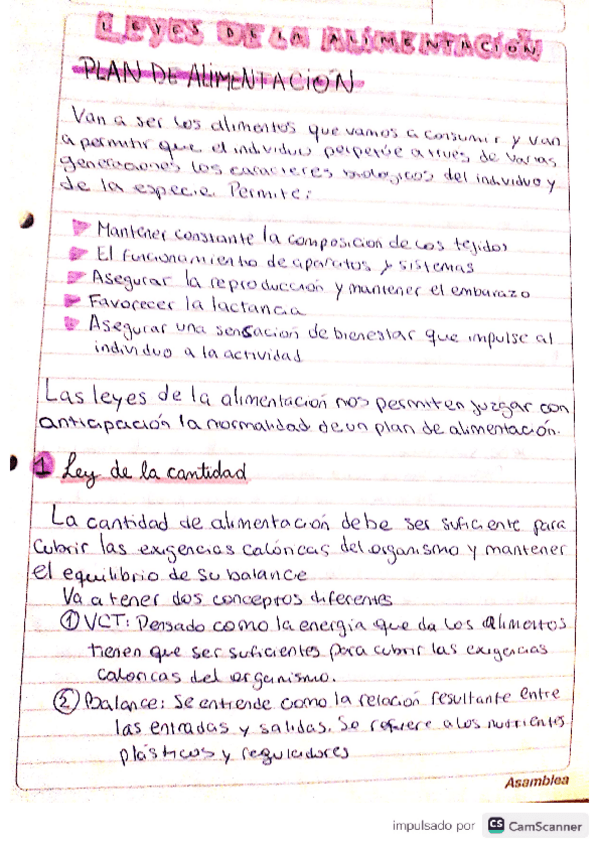 LEYES DE LA ALIMENTACIÓN
PLAN DE ALIMENTACIÓN
Van a ser los alimentos que vamos a consumir y van
a permitir que el individuo perpetúe a traves de varias
generaciones los caracteres biologicos del individuo y
de la especie. Permite:
Mantener constante la composicion de los tejidos
El funcionamiento de aparatos y sistemas
Asegurar la reproducción y mantener el embarazo
Favorecer la lactancia
Asegurar una sensacion de bienestar que impulse al
individuo a la actividad
Las leyes de la alimentación nos permiten juzgar con
anticipación la normalidad de un plan de alimentación.
1 Ley de la cantidad
La cantidad de alimentación debe ser suficiente para
cubrir las exigencias calóricas del organismo y mantener
el equilibrio de su balance
Va a tener dos conceptos diferentes
① VCT: Pensado como la energía que da los alimentos
tienen que ser suficientes para cubrir las exigencias
caloricas del organismo.
② Balance: Se entiende como la relación resultante entre
las entradas y salidas. Se refiere a los nutrientes
plásticos y reguladores
Asamblea
impulsado por CS CamScanner